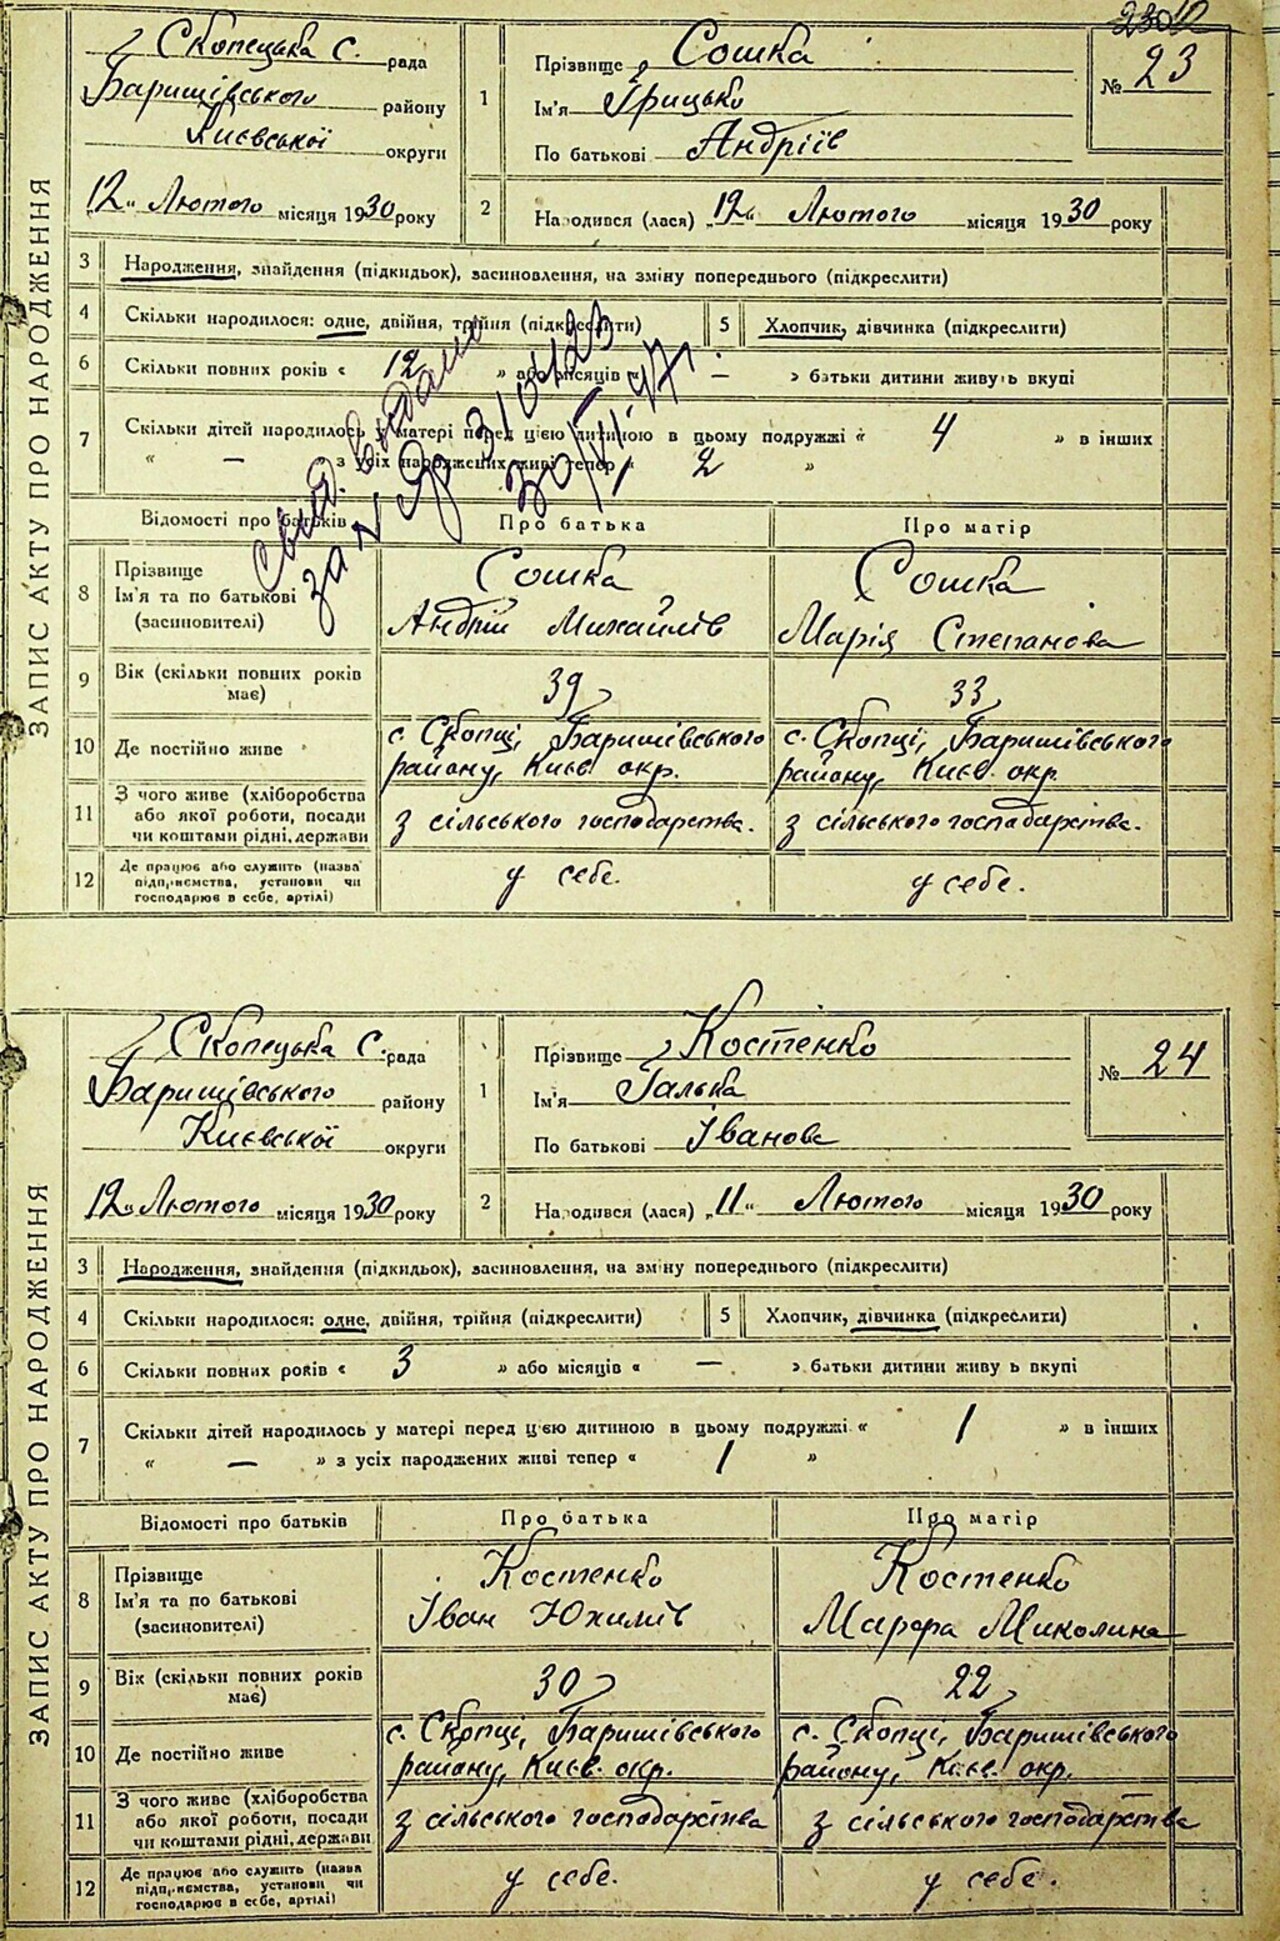 Скопецька с. рада
Баришівського району
Київської округи
„12“ Лютого місяця 1930 року
1 Прізвище Сошка
Ім'я Грицько
По батькові Андріїв
№ 23
2 Народився (лася) „12“ Лютого місяця 1930 року
ЗАПИС АКТУ ПРО НАРОДЖЕННЯ
3 Народження, знайдення (підкидьок), засиновлення, на зміну попереднього (підкреслити)
4 Скільки народилося: одне, двійня, трійня (підкреслити) 5 Хлопчик, дівчинка (підкреслити)
6 Скільки повних років « 12 » або місяців « — » батьки дитини живуть вкупі
7 Скільки дітей народилось у матері перед цією дитиною в цьому подружжі « 4 » в інших
« — » з усіх народжених живі тепер « 2 »
Свид. видано
за №
30/VI.47.
Відомості про батьків Про батька Про матір
8 Прізвище Ім'я та по батькові (засиновителі)
Сошка Сошка
Андрій Михайлів Марія Степанова
9 Вік (скільки повних років має) 39 33
10 Де постійно живе
с. Скопці, Баришівського с. Скопці, Баришівського
району, Києв. окр. району, Києв. окр.
11 З чого живе (хліборобства або якої роботи, посади чи коштами рідні, держави
з сільського господарства. з сільського господарства.
12 Де працює або служить (назва підприємства, установи чи господарює в себе, артілі)
у себе. у себе.
Скопецька с. рада
Баришівського району
Києвської округи
12„ Лютого місяця 1930 року
1 Прізвище Костенко
Ім'я Галька
По батькові Іванова
№ 24
2 Народився (лася) „11“ Лютого місяця 1930 року
ЗАПИС АКТУ ПРО НАРОДЖЕННЯ
3 Народження, знайдення (підкидьок), засиновлення, на зміну попереднього (підкреслити)
4 Скільки народилося: одне, двійня, трійня (підкреслити) 5 Хлопчик, дівчинка (підкреслити)
6 Скільки повних років « 3 » або місяців « — » батьки дитини живуть вкупі
7 Скільки дітей народилось у матері перед цією дитиною в цьому подружжі « 1 » в інших
« — » з усіх народжених живі тепер « 1 »
Відомості про батьків Про батька Про матір
8 Прізвище Ім'я та по батькові (засиновителі)
Костенко Костенко
Іван Юхимів Марфа Миколина
9 Вік (скільки повних років має) 30 22
10 Де постійно живе
с. Скопці, Баришівського с. Скопці, Баришівського
району, Києв. окр. району, Києв. окр.
11 З чого живе (хліборобства або якої роботи, посади чи коштами рідні, держави
з сільського господарства з сільського господарства
12 Де працює або служить (назва підприємства, установи чи господарює в себе, артілі)
у себе. у себе.